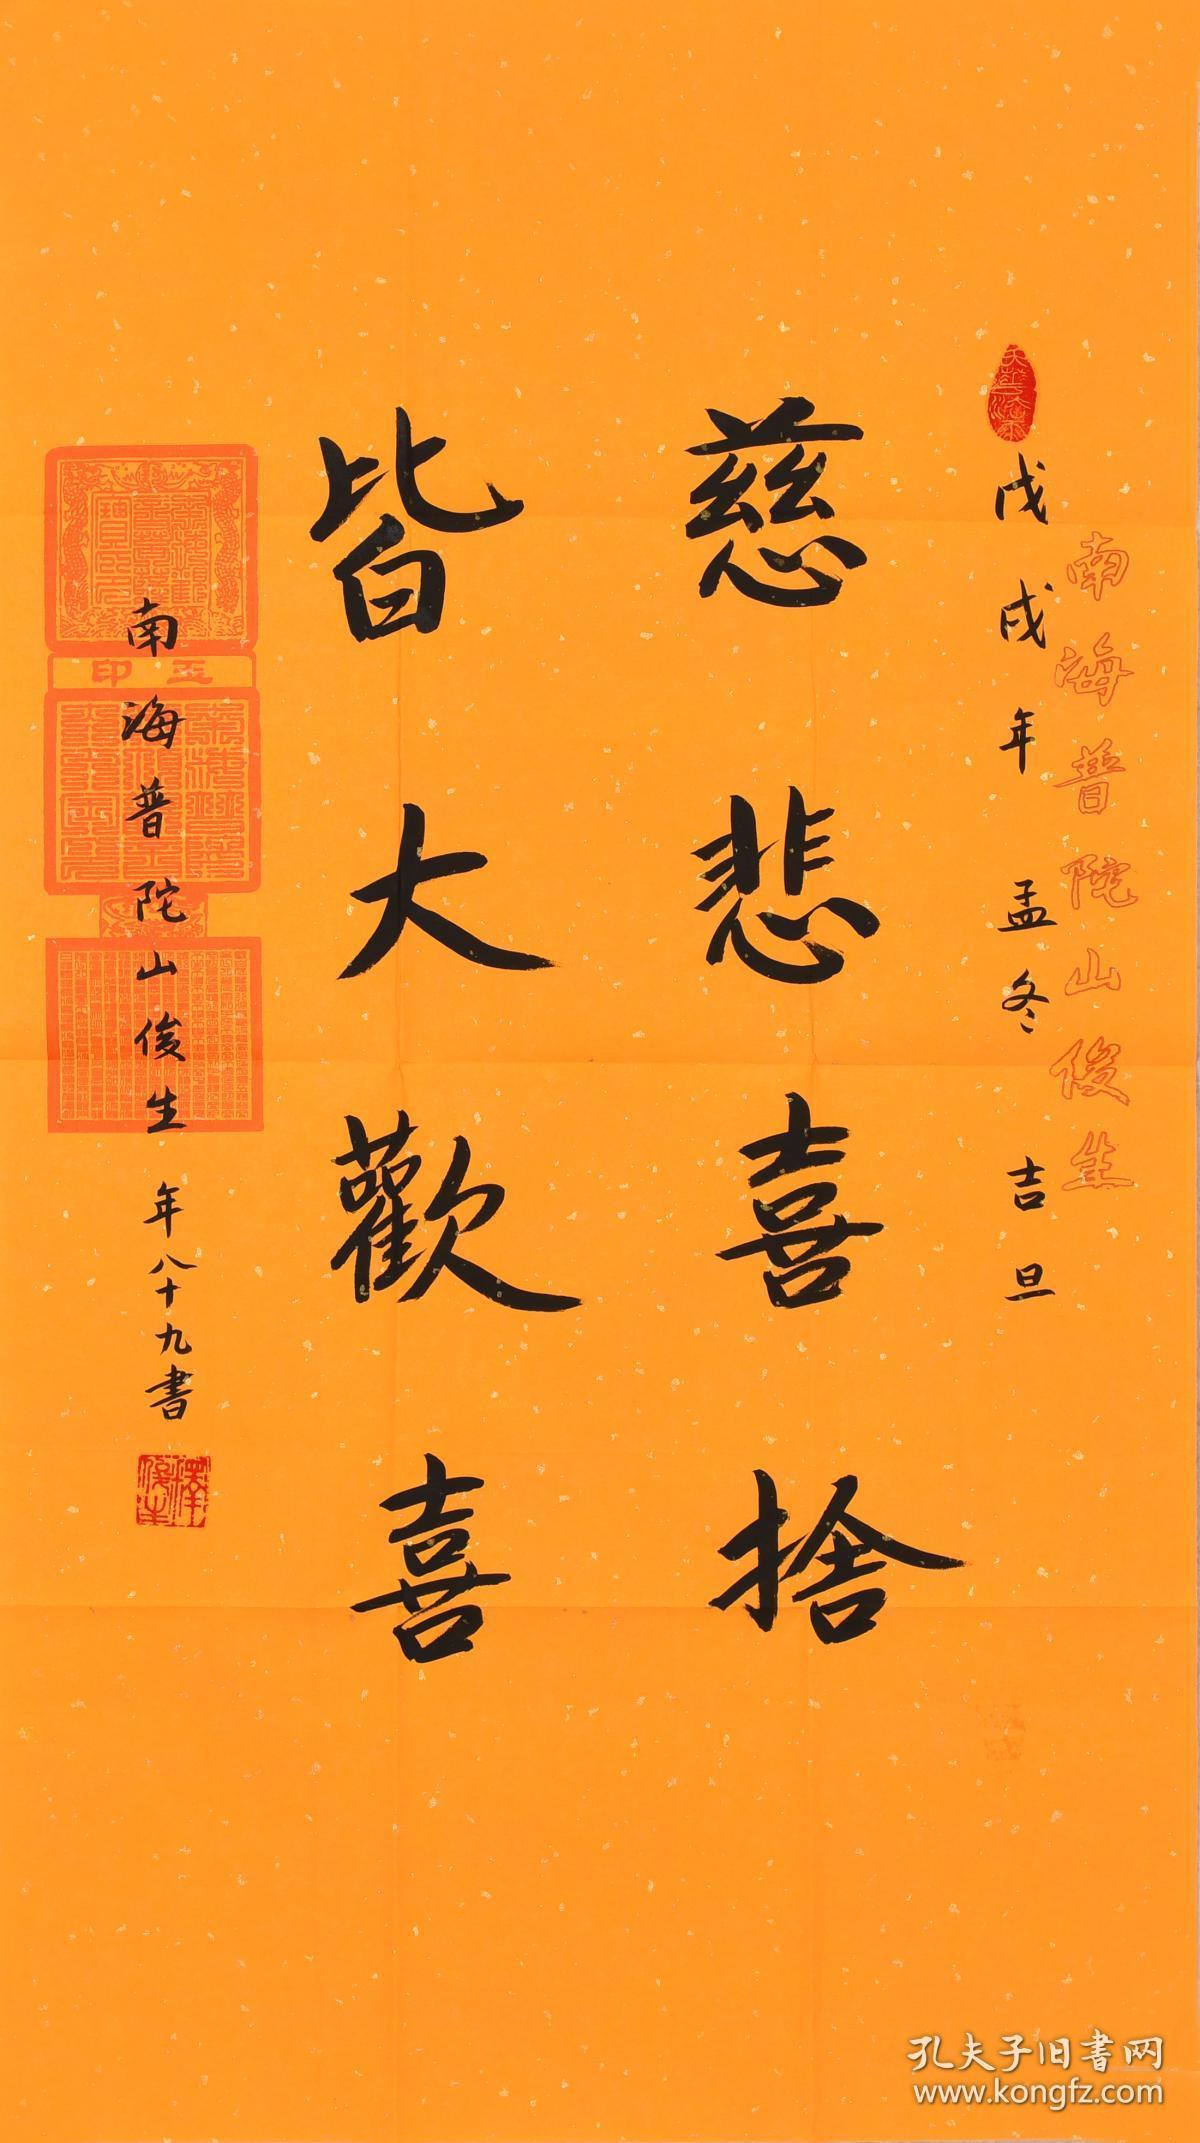 南海普陀山俊生
戊戌年孟冬吉旦
慈悲喜捨
皆大歡喜
南海普陀山俊生年八十九書
玉印
孔夫子旧書网
www.kongfz.com